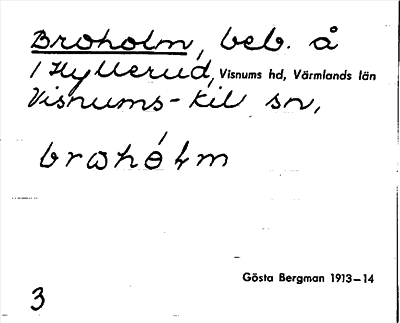 Broholm, beb. å
1 Hyllerud, Visnums hd, Värmlands län
Visnums-Kil sn,
Gösta Bergman 1913–14
3